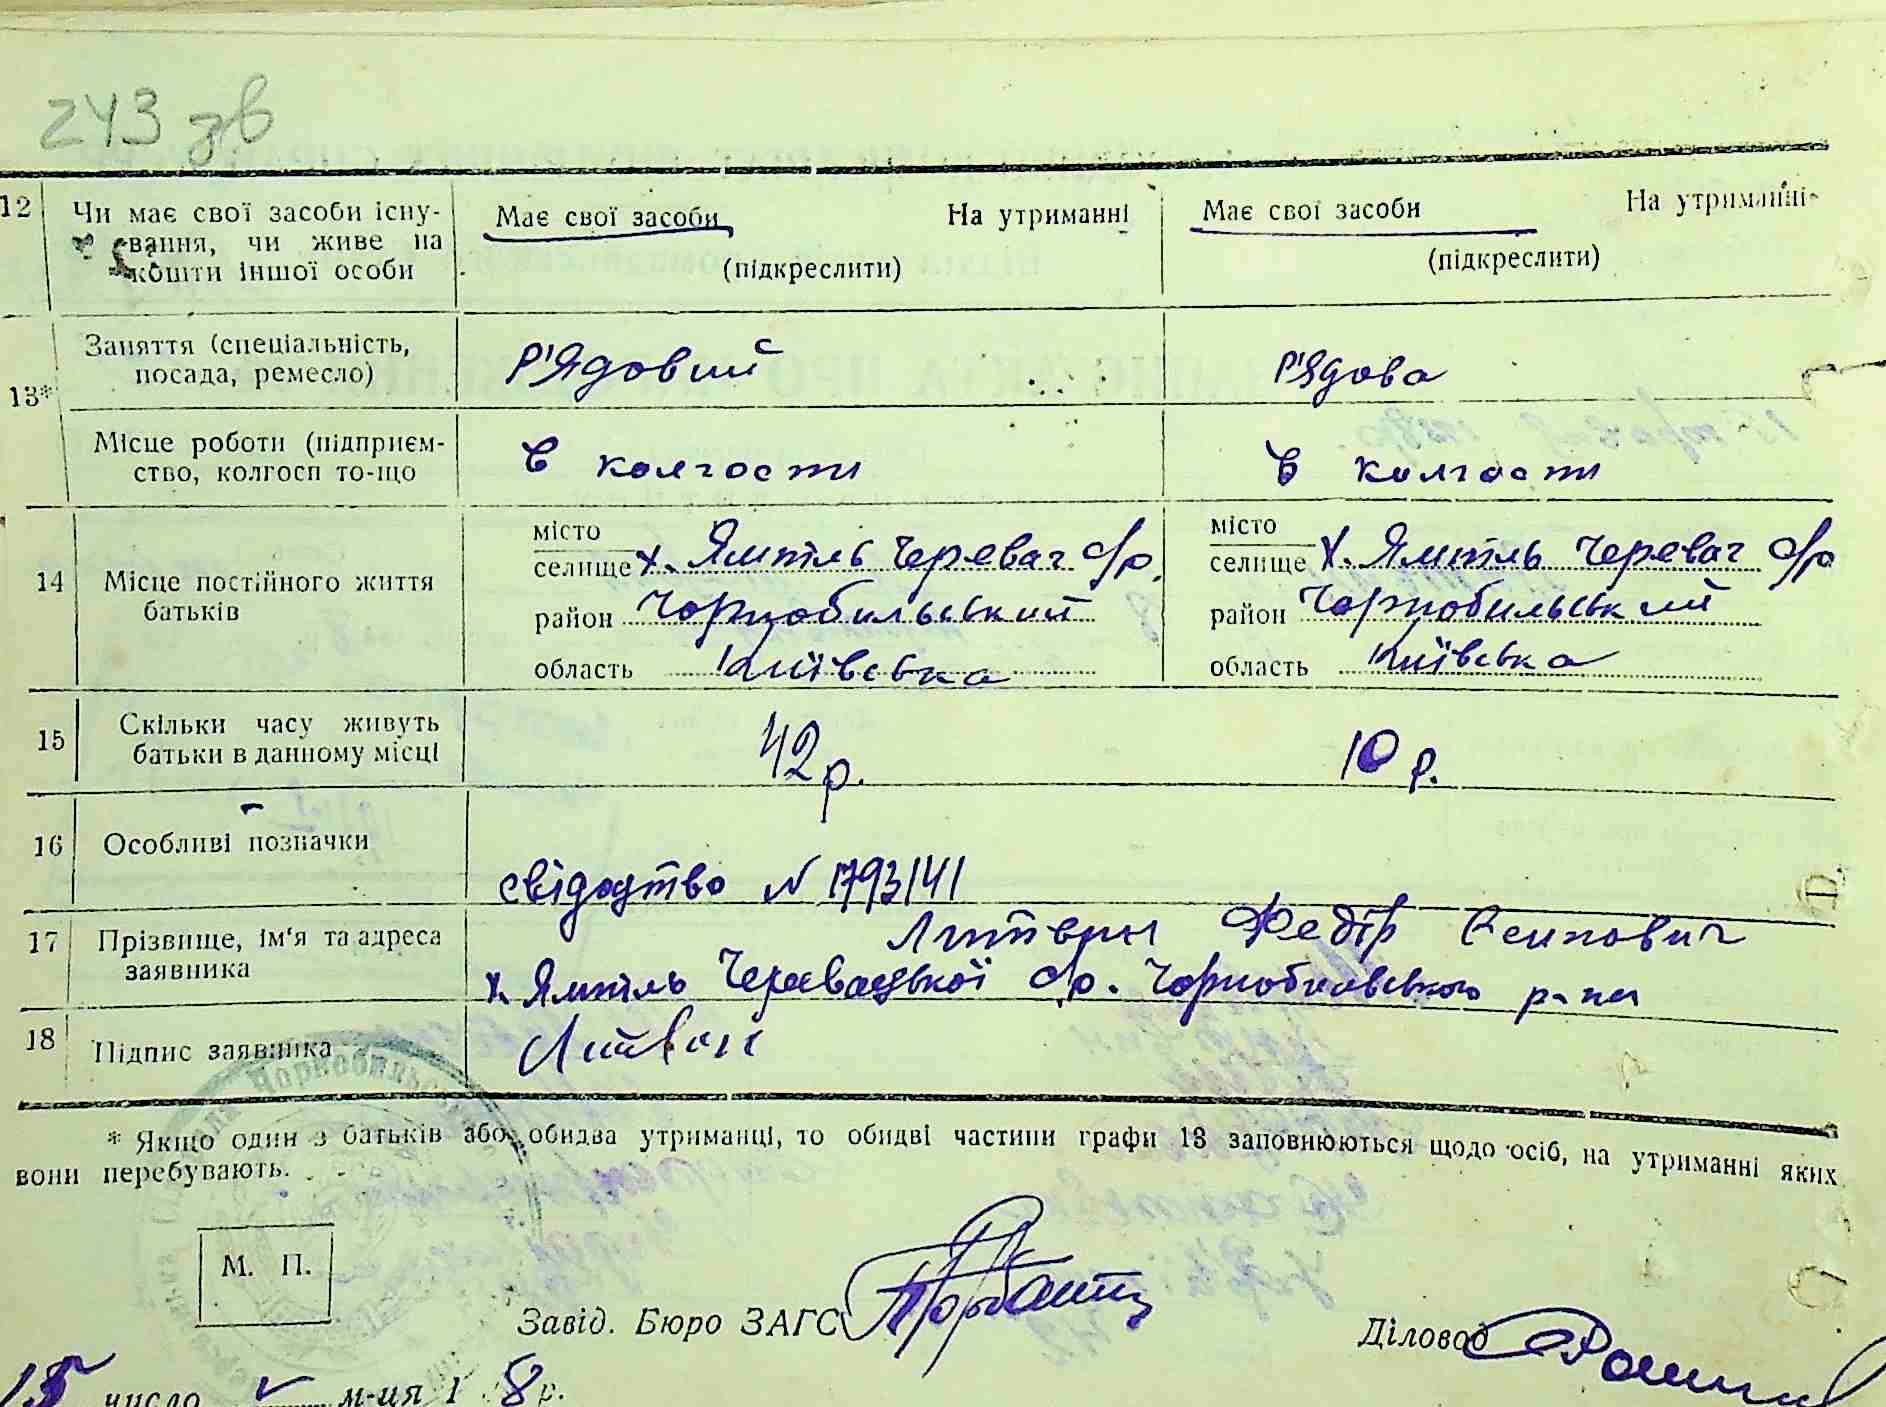 243 зв
12 Чи має свої засоби існу- Має свої засоби На утриманні Має свої засоби На утриманні
вання, чи живе на
кошти іншої особи (підкреслити) (підкреслити)
13* Заняття (спеціальність, посада, ремесло) Р'ядовий Р'ядова
Місце роботи (підприєм-
ство, колгосп то-що В колгоспи В колгоспи
14 Місце постійного життя
батьків
місто
селище х. Ямпіль Черевач с/р.
район Чорнобильський
область Київська
місто
селище х. Ямпіль Черевач с/р
район Чорнобильський
область Київська
15 Скільки часу живуть
батьки в данному місці 42 р. 10 р.
16 Особливі позначки
свідоцтво N 1793/41
17 Прізвище, ім'я та адреса Литвин Федір Осипович
заявника х. Ямпіль Черевацької с/р. р-на
18 Підпис заявника Литвин
* Якщо один з батьків або обидва утриманці, то обидві частини графи 13 заповнюються щодо осіб, на утриманні яких
вони перебувають.
М. П.
Завід. Бюро ЗАГС
Діловод
15 число V м-ця 1 8 р.